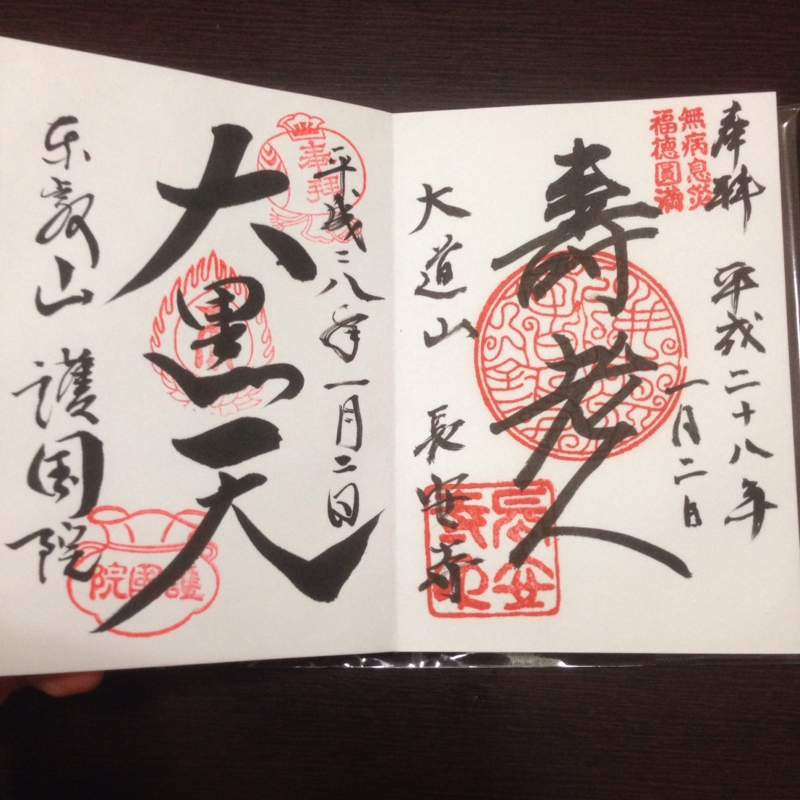 奉拝
平成二十八年
一月二日
無病息災
福徳圓満
壽老人
大道山 長安寺
長安寺印
平成二八年一月二日
奉拝
大黒天
东叡山 護国院
護國院